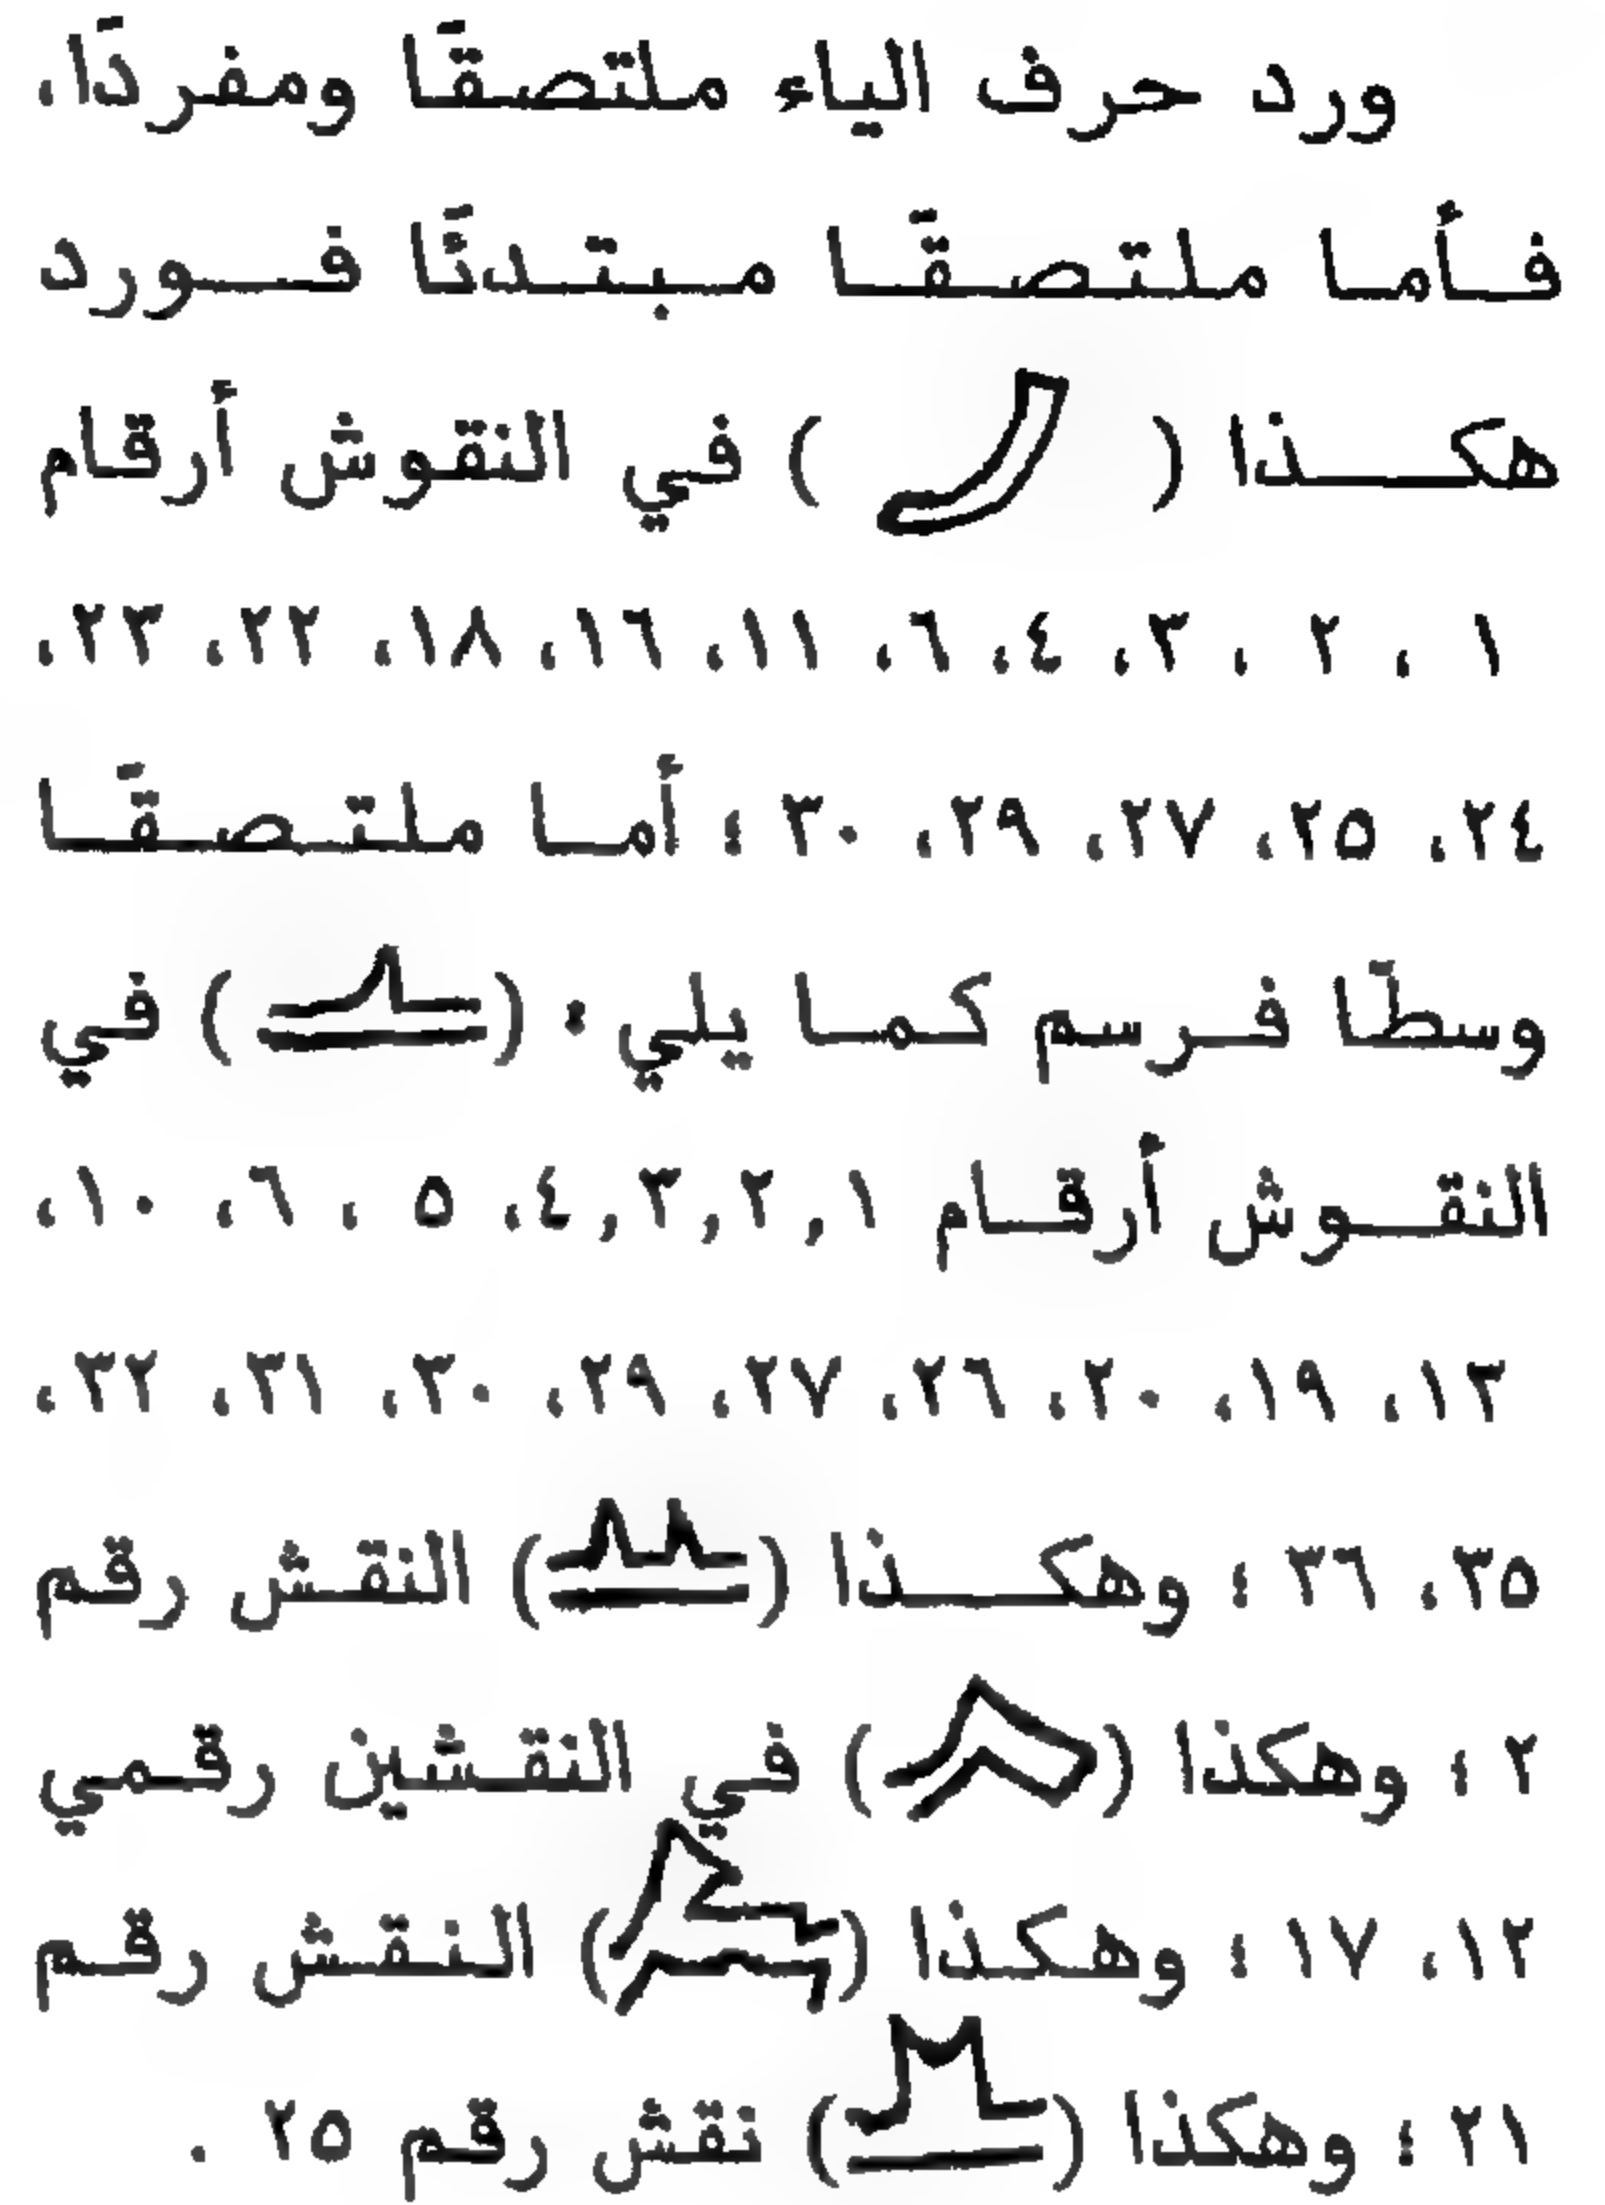 ورد حرف الياء ملتصقًا ومفردًا،
فأما ملتصقًا مبتدئًا فورد
هكذا ( ) في النقوش أرقام
١ ، ٢ ، ٣، ٤، ٦، ١١، ١٦، ١٨، ٢٢، ٢٣،
٢٤، ٢٥، ٢٧، ٢٩، ٣٠ ؛ أما ملتصقًا
وسطًا فرسم كما يلي : ( ) في
النقوش أرقام ١ ,٢ ,٣ ,٤، ٥ ، ٦، ١٠،
١٣، ١٩، ٢٠، ٢٦، ٢٧، ٢٩، ٣٠، ٣١، ٣٢،
٣٥، ٣٦ ؛ وهكذا ( ) النقش رقم
٢ ؛ وهكذا ( ) في النقشين رقمي
١٢، ١٧ ؛ وهكذا ( ) النقش رقم
٢١ ؛ وهكذا ( ) نقش رقم ٢٥ .